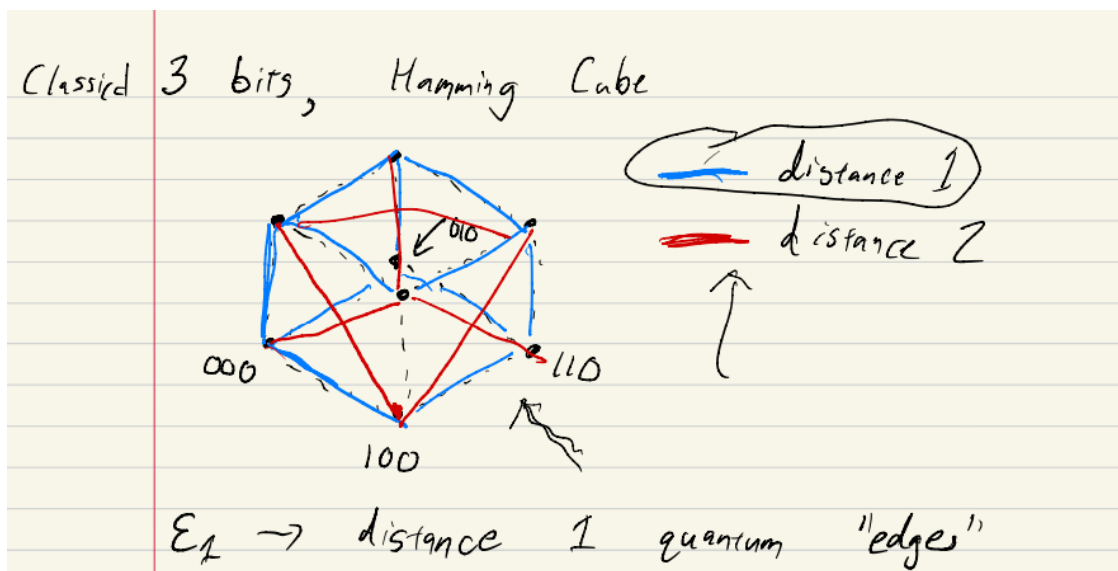 Classical 3 bits, Hamming Cube
distance 1
010
distance 2
000
110
100
ε₁ → distance 1 quantum "edges"